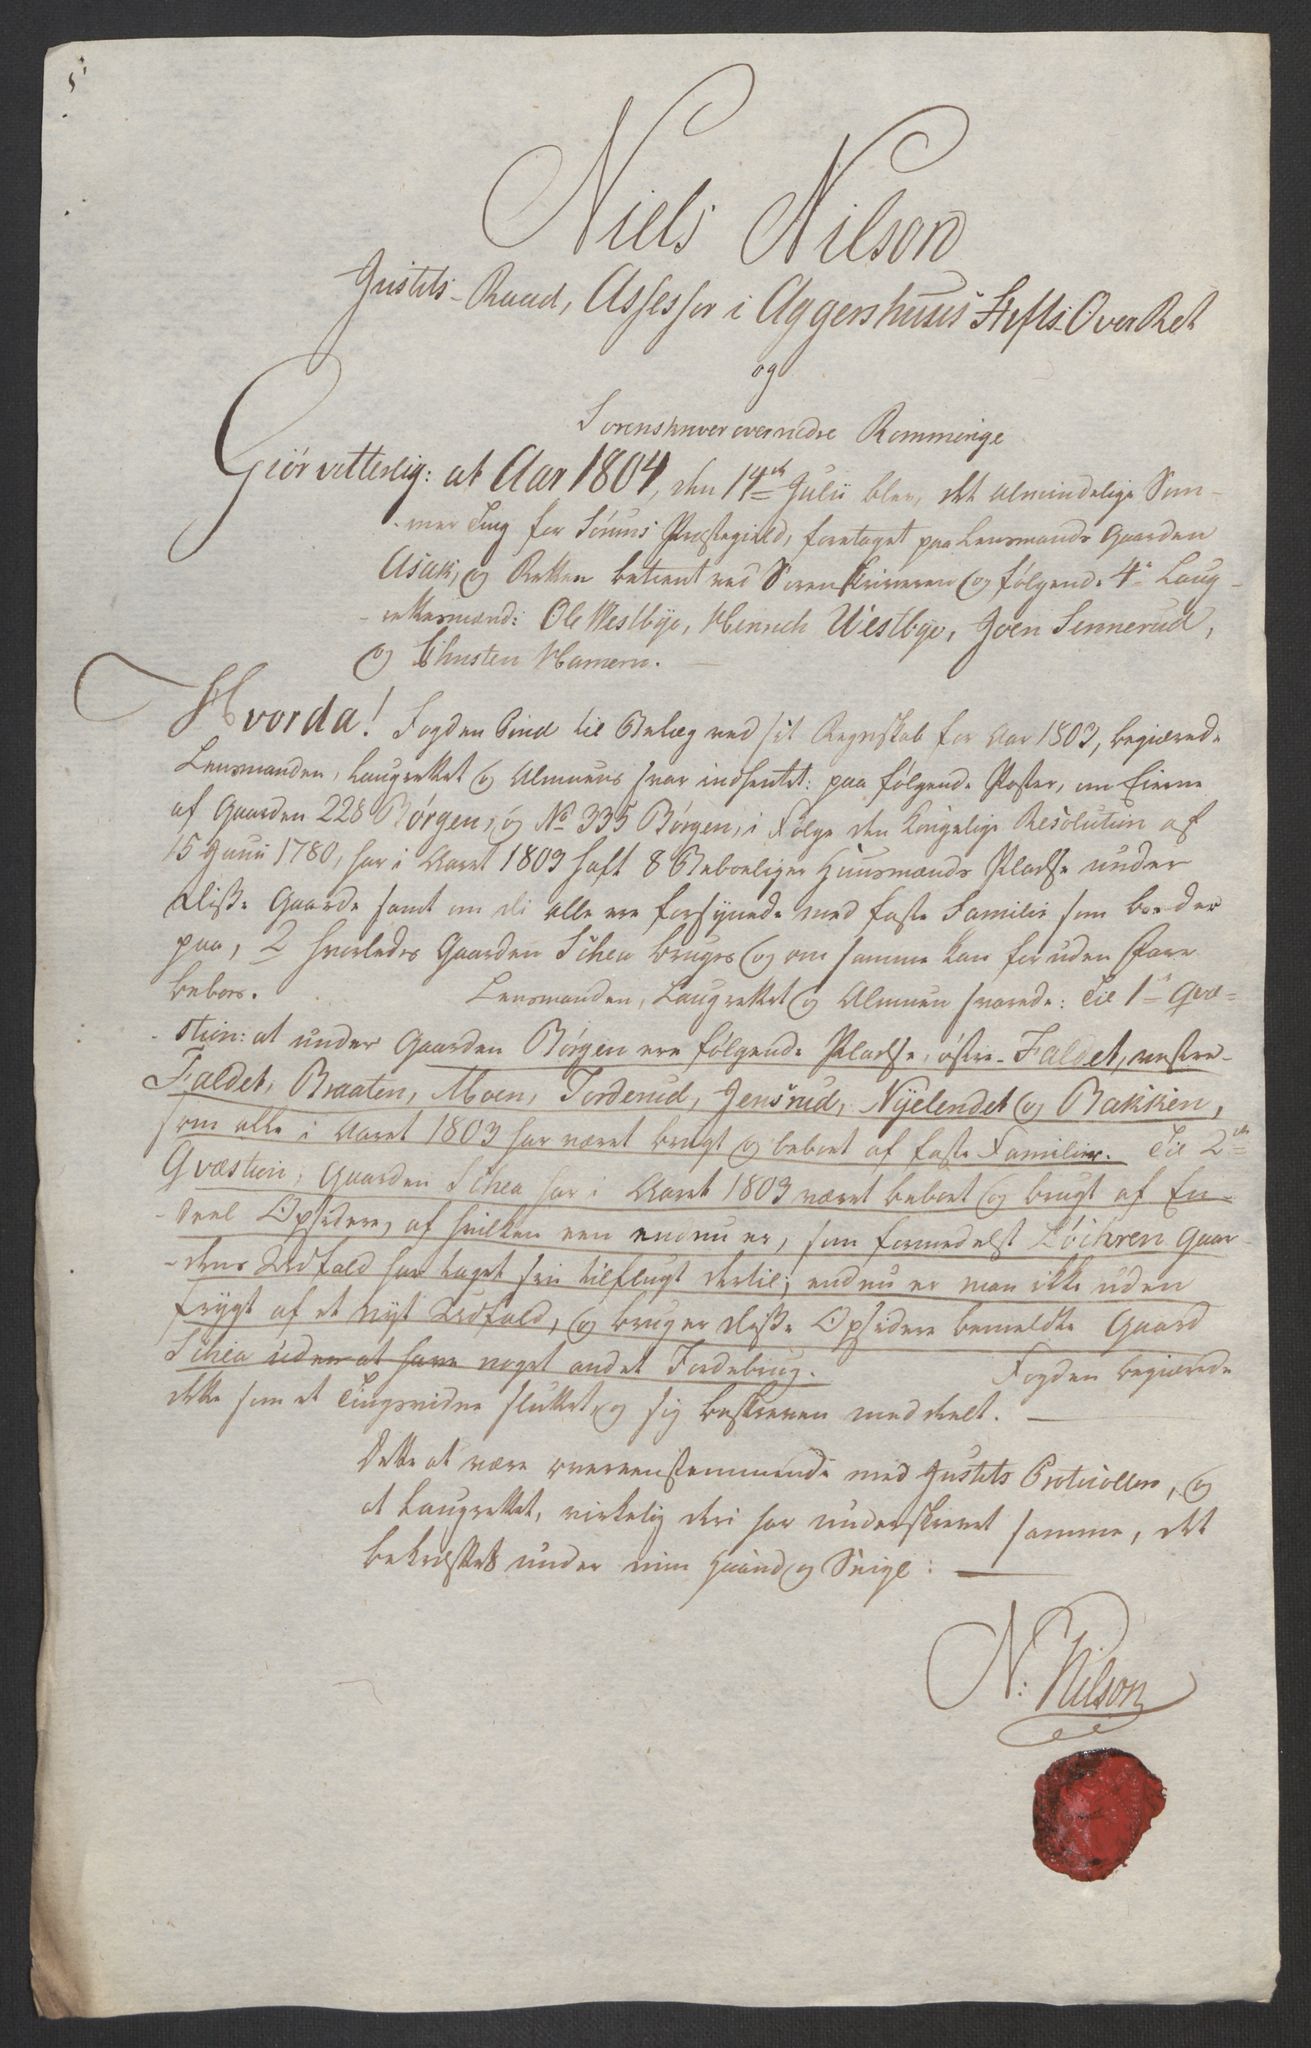 Niels Nilson
Justits-Raad, Assessor i Aggershuus Stifts Over Ret
og
Sorenskriver over nedre Rommerige
Giør vitterlig: at Aar 1804, den 14de Julii blev, det almindelige Som-
-mer Ting for Sørums Præstegield, foretaget paa Lensmands Gaarden
Asak, og Retten betient ved Sorenskriveren og følgende 4re Laug-
-rettesmænd: Ole Westbye, Henrich Westbye, Joen Sennerud,
og Christen Hamern.
Hvorda! Fogden Bind til Belæg ved sit Regnskab for Aar 1803, begiærede
Lensmanden, Laugrettet og Almuens svar indhentet: paa følgende Poster, om Eierne
af Gaarden 228 Børgen, og No 335 Børgen, i Følge den Kongelige Resolution af
15 Junii 1780, har i Aaret 1803 haft 8 Beboelige Huusmænds Pladse under
disse Gaarde samt om de alle ere forsynede med faste Familie som boe der
paa, 2 hvorledes Gaarden Schea bruges og om samme kan for uden Fare
beboes. Lensmanden, Laugrettet og Almuen svarede: Til 1ste Qvæ-
-stion: at under Gaarden Børgen ere følgende Pladse, østre-Faldet, vestre-
Faldet, Braaten, Moen, Torderud, Jensrud, Nyelendet og Bakken,
som alle i Aaret 1803 har været brugt og beboet af faste Familier. Til 2den
Qvæstion, Gaarden Schea har i Aaret 1803 været beboet og brugt af En-
-deel Opsidere, af hvilken een endnu er, som formedelst Løchren Gaar-
-dens Udfald har taget sin tilflugt dertil; endnu er man ikke uden
frygt af et nyt Udfald, og bruger disse Opsidere bemeldte Gaard
Schea uden at have noget andet Jordebrug. Fogden begiærede
dette som et Tingsvidne sluttet, og sig beskreven meddeelt.
Dette at være overeensstemmende med Justits Protocollen, og
at Laugrettet, virkelig deri har underskrevet samme, det
bekræftes under min Haand og Seigl:
N: Nilson